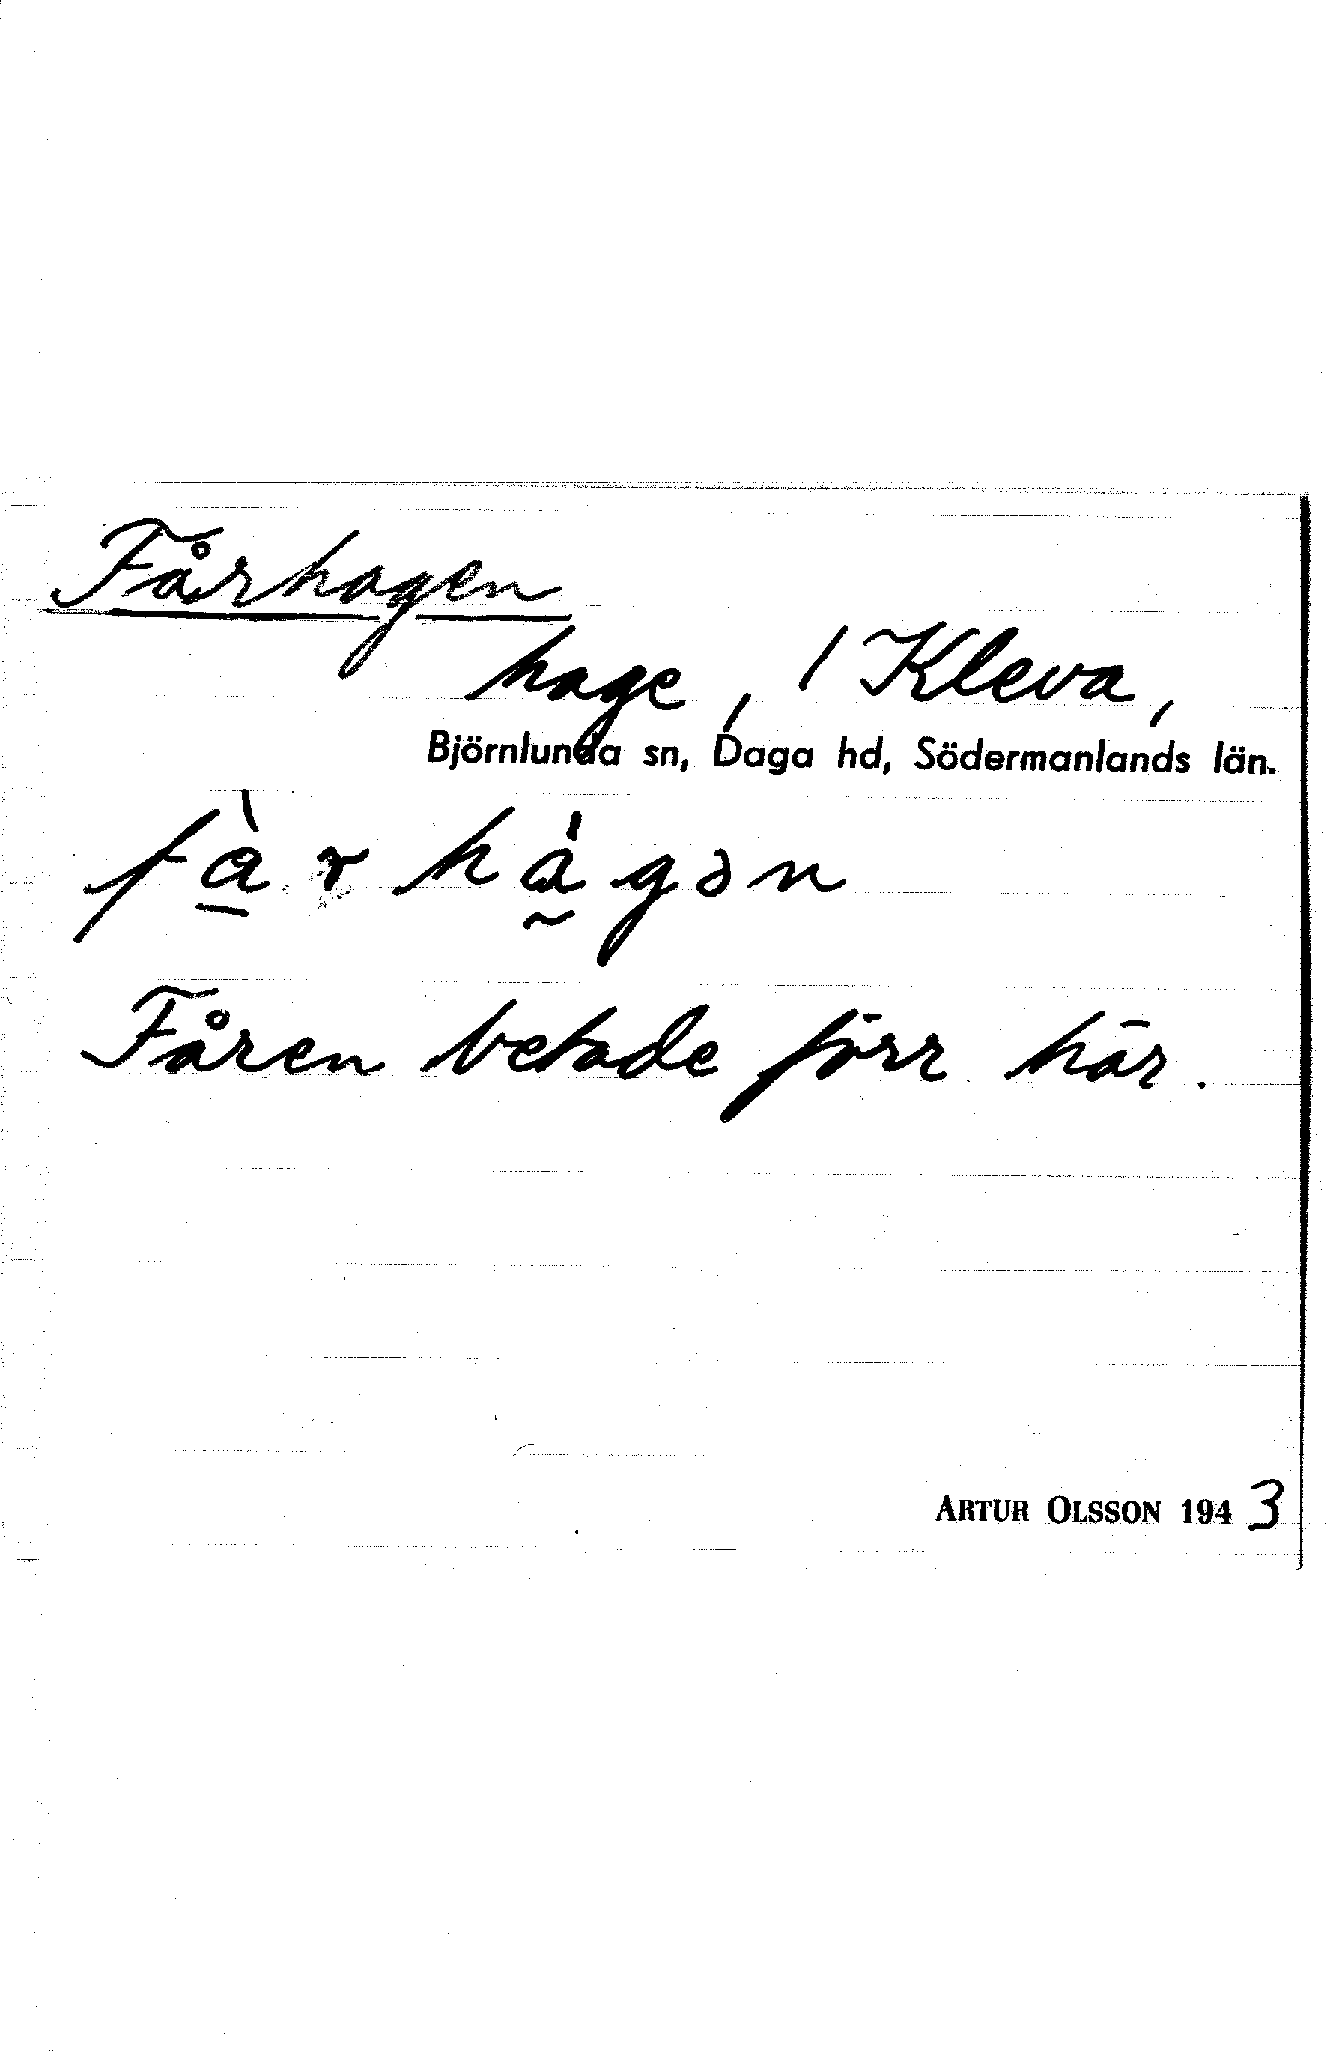 Fårhagen
hage, / Kleva,
Björnlunda sn, Daga hd, Södermanlands län.
fàrhágən
Fåren betade förr här.
ARTUR OLSSON 1943